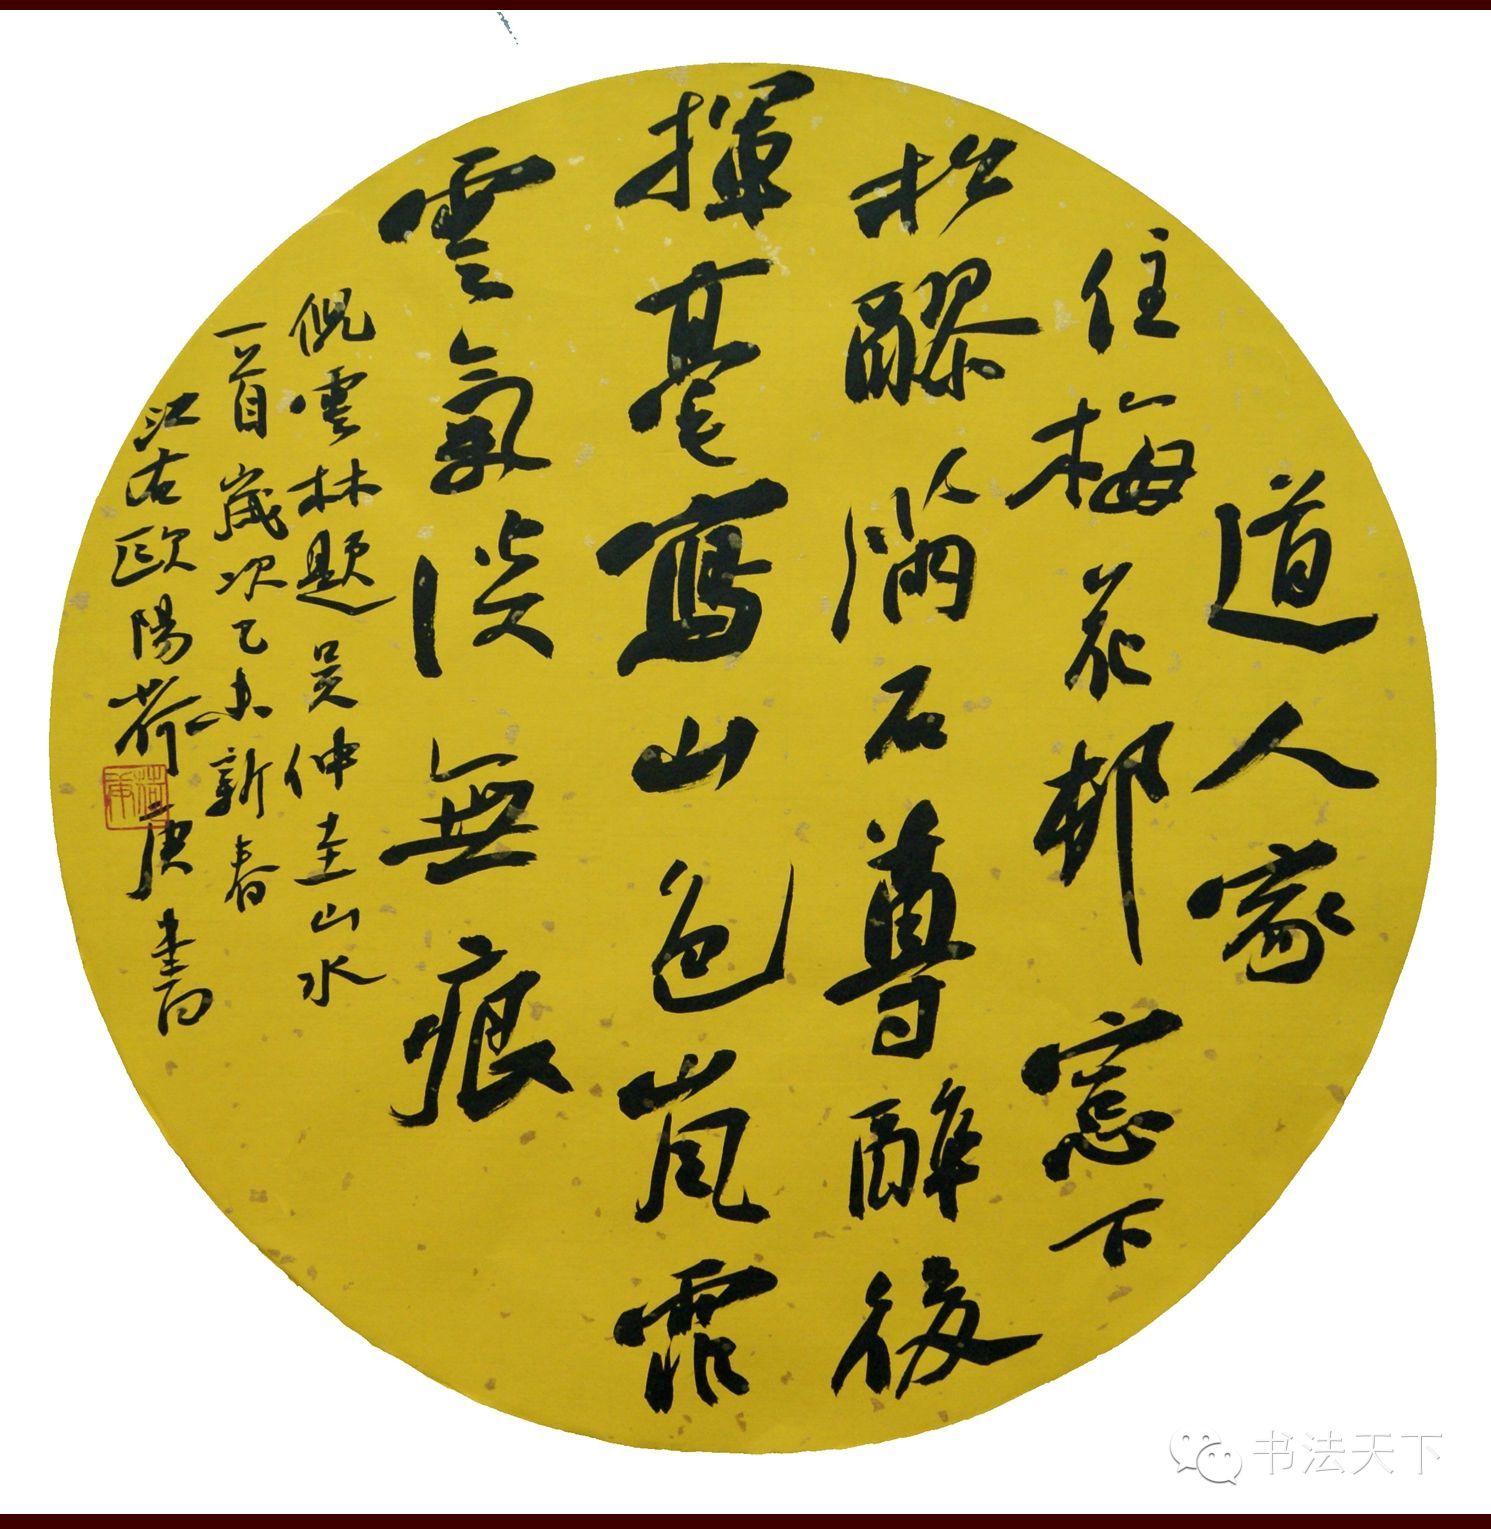 道人家
住梅花邨窓下
松醪滿石尊醉後
揮毫寫山色嵐霏
雲氣淡無痕
倪雲林題吴仲圭山水
一首歲次乙未新春
江右歐陽荷庚書
荷庚
书法天下